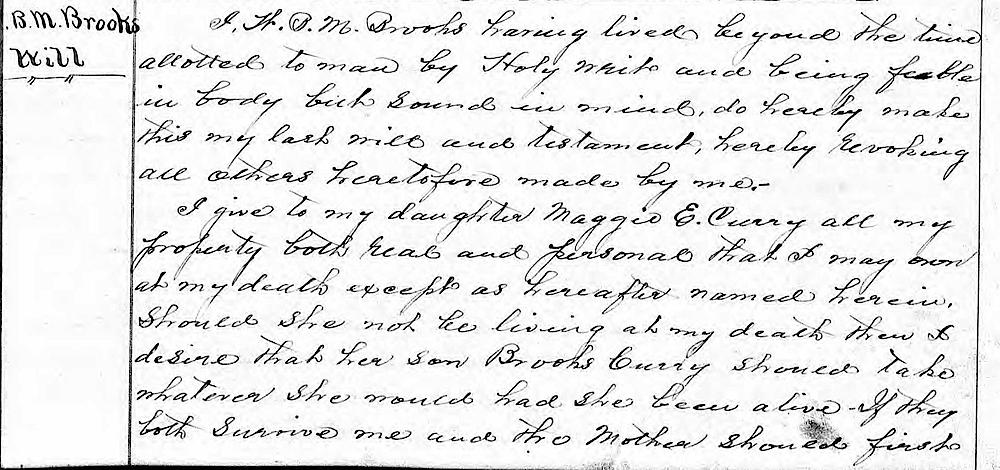 .B.M. Brooks
Will
I, H. B. M. Brooks having lived beyond the time
allotted to man by Holy writ and being feeble
in body but sound in mind, do hereby make
this my last will and testament, hereby revoking
all others heretofore made by me.-
I give to my daughter Maggie E. Curry all my
property both real and personal that I may own
at my death except as hereafter named herein.
Should she not be living at my death then I
desire that her son Brooks Curry should take
whatever she would had she been alive - If they
both survive me and the Mother should first